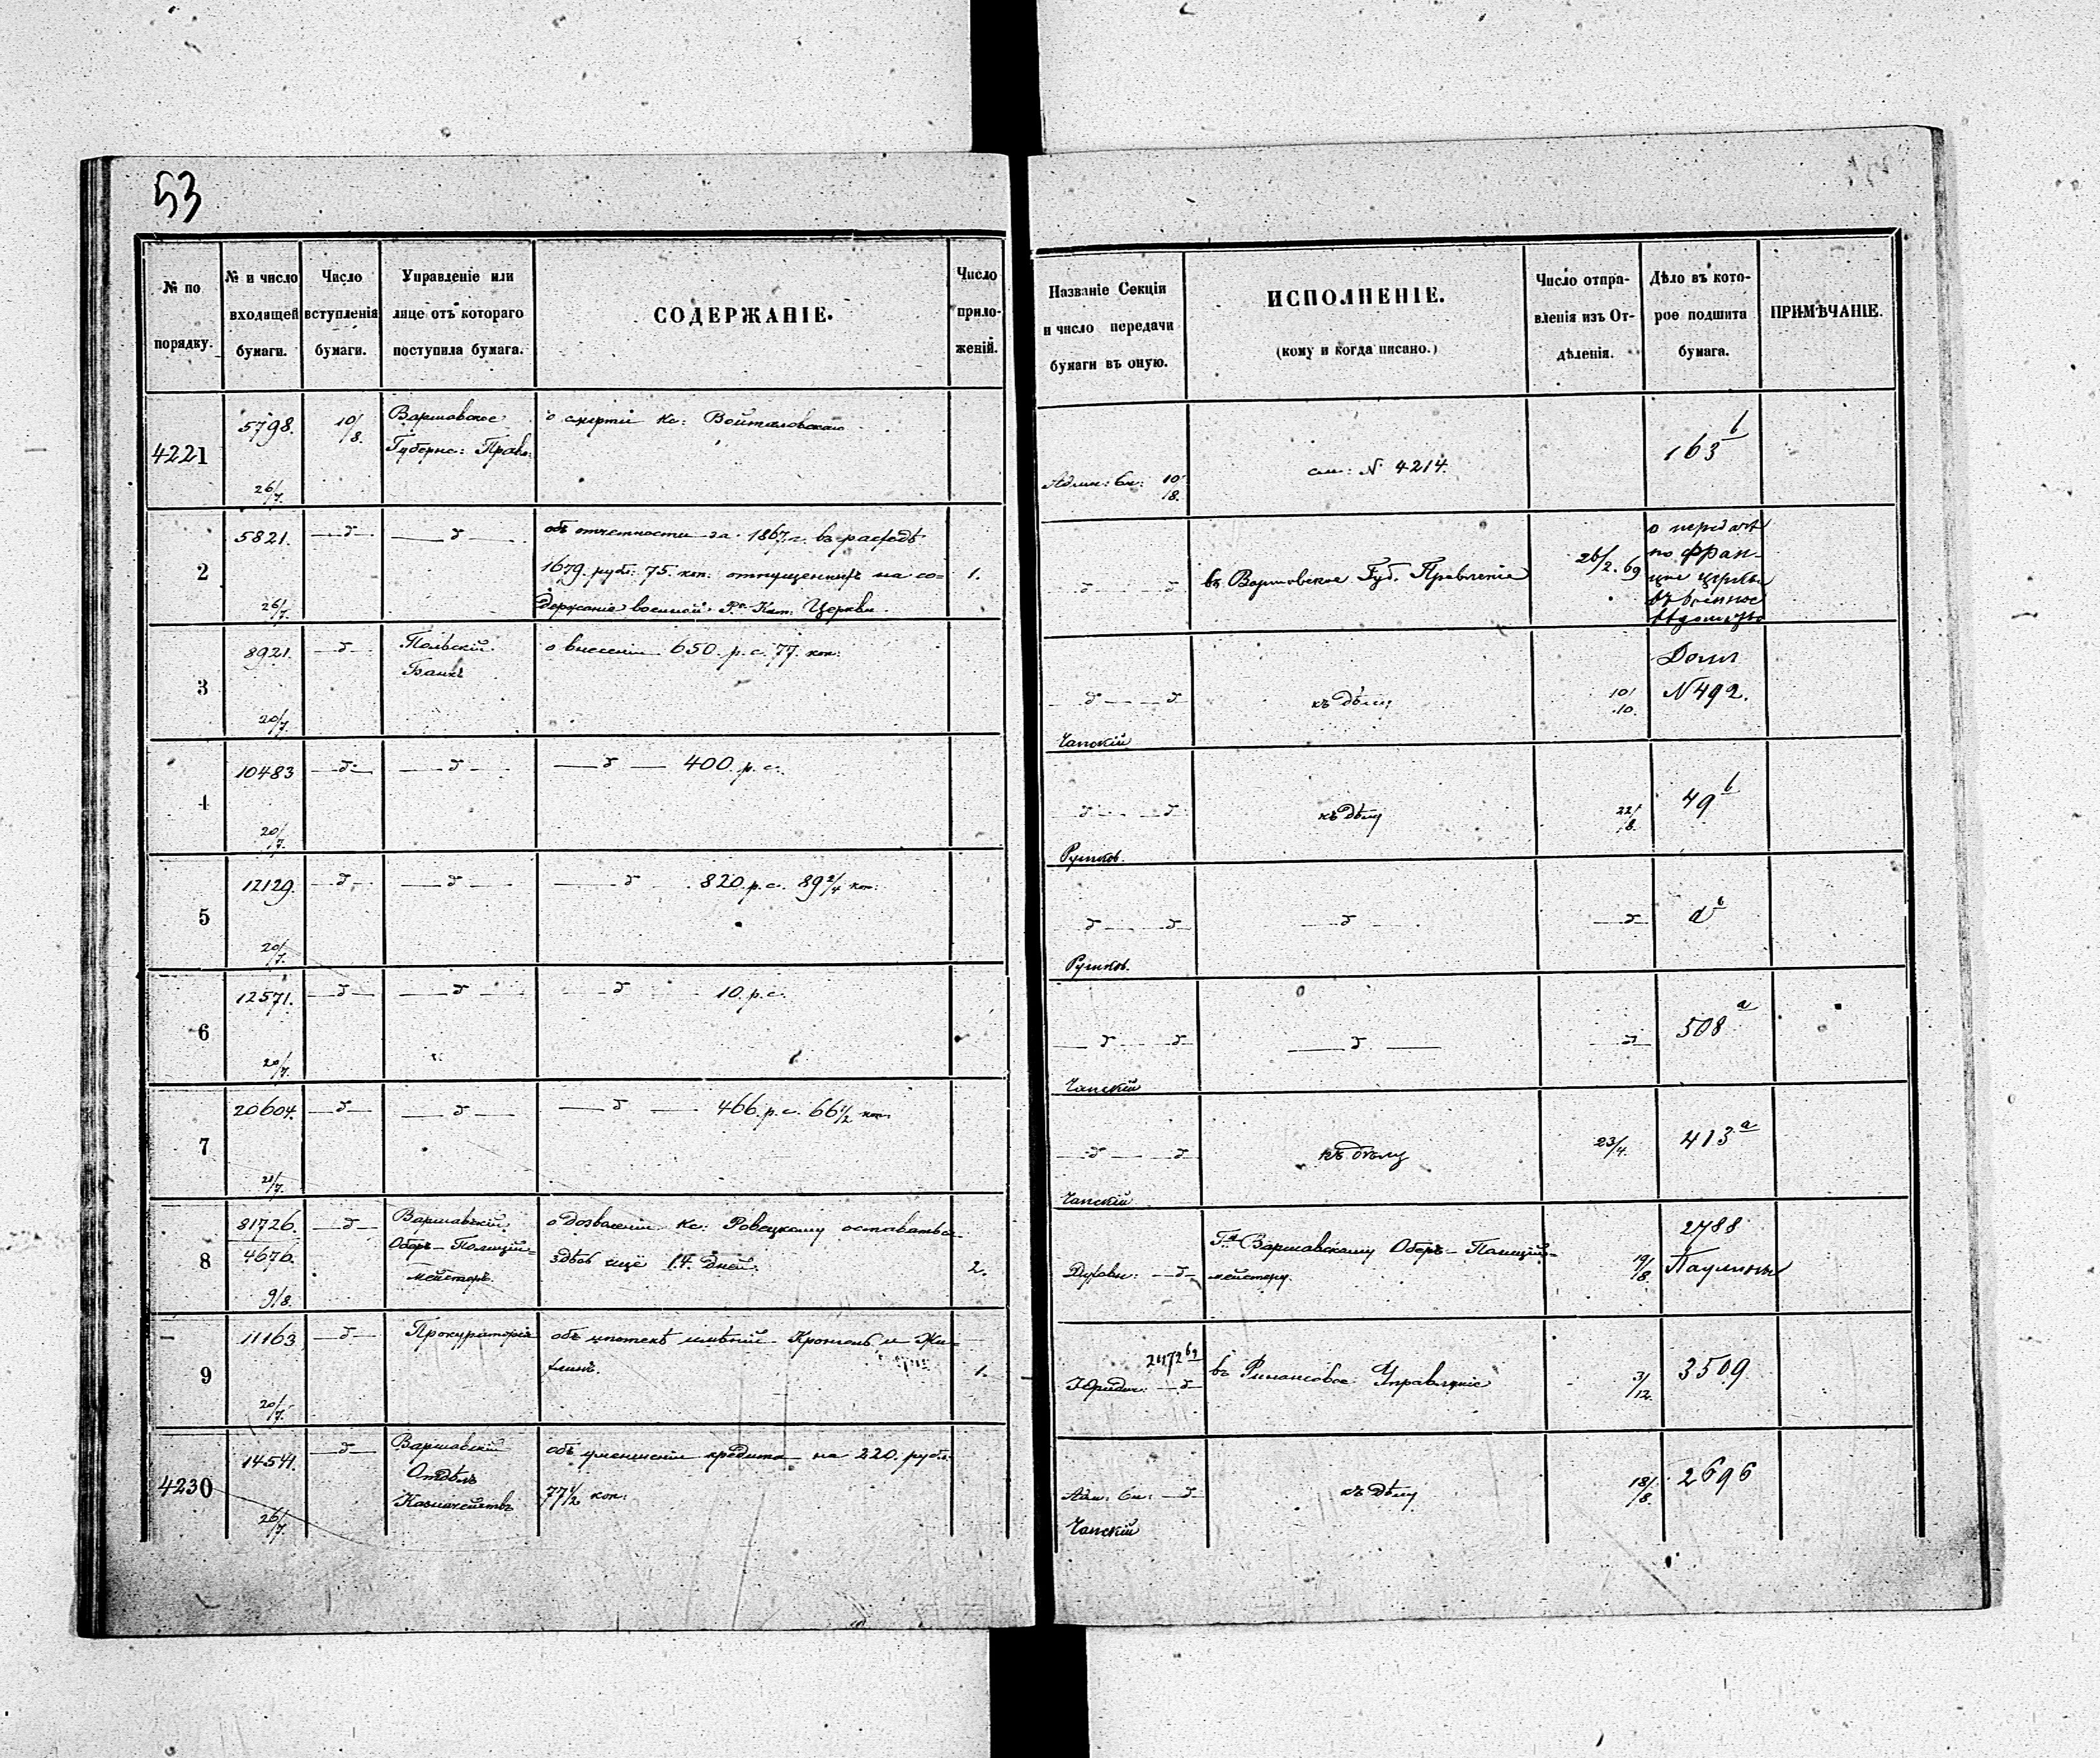 53
№ по порядку.
№ и число входящей бумаги.
Число вступленія бумаги.
Управленіе или лице отъ котораго поступила бумага.
СОДЕРЖАНІЕ.
Число приложеній.
Названіе Секціи и число передачи бумаги въ оную.
ИСПОЛНЕНІЕ.
(кому и когда писано.)
Число отправленія изъ Отдѣленія.
Дѣло въ которое подшита бумага.
ПРИМѢЧАНІЕ.
4221
5798.
26/7.
10/8.
Варшавское
Губернс: Правл:
о смерти Кс:
Админ: 10/8.
см: N 4214.
163 b
2
5821.
26/7.
—д—
—д—
объ отчетности за 1867 г. въ расходѣ
1679. руб: 75. коп: отпущенныхъ на со=
держаніе военной Р. Кат. Церкви.
1.
д — д
въ Варшавское Губ. Правленіе
26/2. 69
о передачѣ
по фран-
въ военное
3
8921.
20/7.
—д—
Польскій
Банкъ
о внесеніи 650. р. с. 77. коп:
д — д
Чапскій
къ дѣлу
10/10.
N 492.
4
10483
20/7.
—д—
—д—
—д— 400. р. с.
д — д
къ дѣлу
22/8.
49 b
5
12129.
20/7.
—д—
—д—
—д— 820. р. с. 89 2/4 коп:
д — д
—д—
—д—
6
12571.
20/7.
—д—
—д—
—д— 10. р. с.
д — д
Чапскій
—д—
—д—
508 a
7
20604.
21/7.
—д—
—д—
—д— 466. р. с. 66 1/2 коп.
д — д
Чапскій
къ дѣлу
23/4.
413 a
8
81726.
4676.
9/8.
—д—
Варшавскій
Оберъ-Полицій=
мейстеръ.
о дозволеніи Кс: Ровецкому оставаться
здѣсь еще 14. дней.
2.
Духовн: —д—
Г. Варшавскому Оберъ-Полицій-
мейстеру.
19/8.
2788
Паулины
9
11163
20/7.
—д—
Прокураторія
объ ипотекѣ имѣній
1.
Юридич: —д—
въ Финансовое Управленіе
31/12.
3509
4230
14541.
26/7.
—д—
Варшавскій
Отдѣлъ
Казначействъ
объ уменшеніи кредита на 220. рубл.
77 1/2 коп:
Адм: —д
Чапскій
къ дѣлу
18/8.
2696